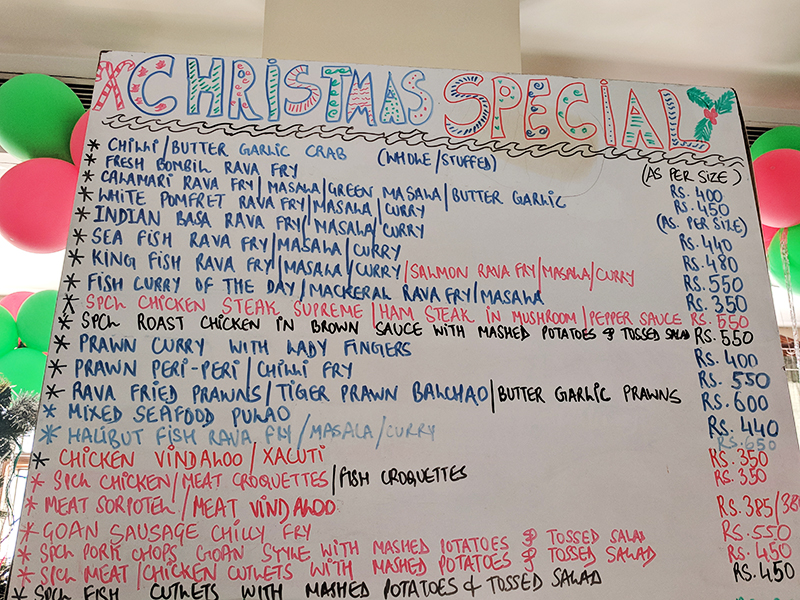 XCHRISTMAS SPECIAL
* CHILLI/BUTTER GARLIC CRAB (WHOLE/STUFFED) (AS PER SIZE)
* FRESH BOMBIL RAVA FRY RS. 400
* CALAMARI RAVA FRY/MASALA/GREEN MASALA/BUTTER GARLIC RS. 450
* WHITE POMFRET RAVA FRY/MASALA/CURRY (AS. PER SIZE)
* INDIAN BASA RAVA FRY/MASALA/CURRY RS. 440
* SEA FISH RAVA FRY/MASALA/CURRY RS. 480
* KING FISH RAVA FRY/MASALA/CURRY/SALMON RAVA FRY/MASALA/CURRY RS. 550
* FISH CURRY OF THE DAY/MACKERAL RAVA FRY/MASALA RS. 350
* SPCL CHICKEN STEAK SUPREME/HAM STEAK IN MUSHROOM/PEPPER SAUCE RS. 550
* SPCL ROAST CHICKEN IN BROWN SAUCE WITH MASHED POTATOES & TOSSED SALAD RS. 550
* PRAWN CURRY WITH LADY FINGERS RS. 400
* PRAWN PERI-PERI/CHILLI FRY RS. 550
* RAVA FRIED PRAWNS/TIGER PRAWN BALCHAO/BUTTER GARLIC PRAWNS RS. 600
* MIXED SEAFOOD PULAO RS. 440
* HALIBUT FISH RAVA FRY/MASALA/CURRY RS. 650
* CHICKEN VINDALOO/XACUTI RS. 350
* SPCL CHICKEN/MEAT CROQUETTES/FISH CROQUETTES RS. 350
* MEAT SORPOTEL/MEAT VINDALOO RS. 385/
* GOAN SAUSAGE CHILLY FRY
* SPCL PORK CHOPS GOAN STYLE WITH MASHED POTATOES & TOSSED SALAD RS. 550
* SPCL MEAT/CHICKEN CUTLETS WITH MASHED POTATOES & TOSSED SALAD RS. 450
* SPCL FISH CUTLETS WITH MASHED POTATOES & TOSSED SALAD RS. 450